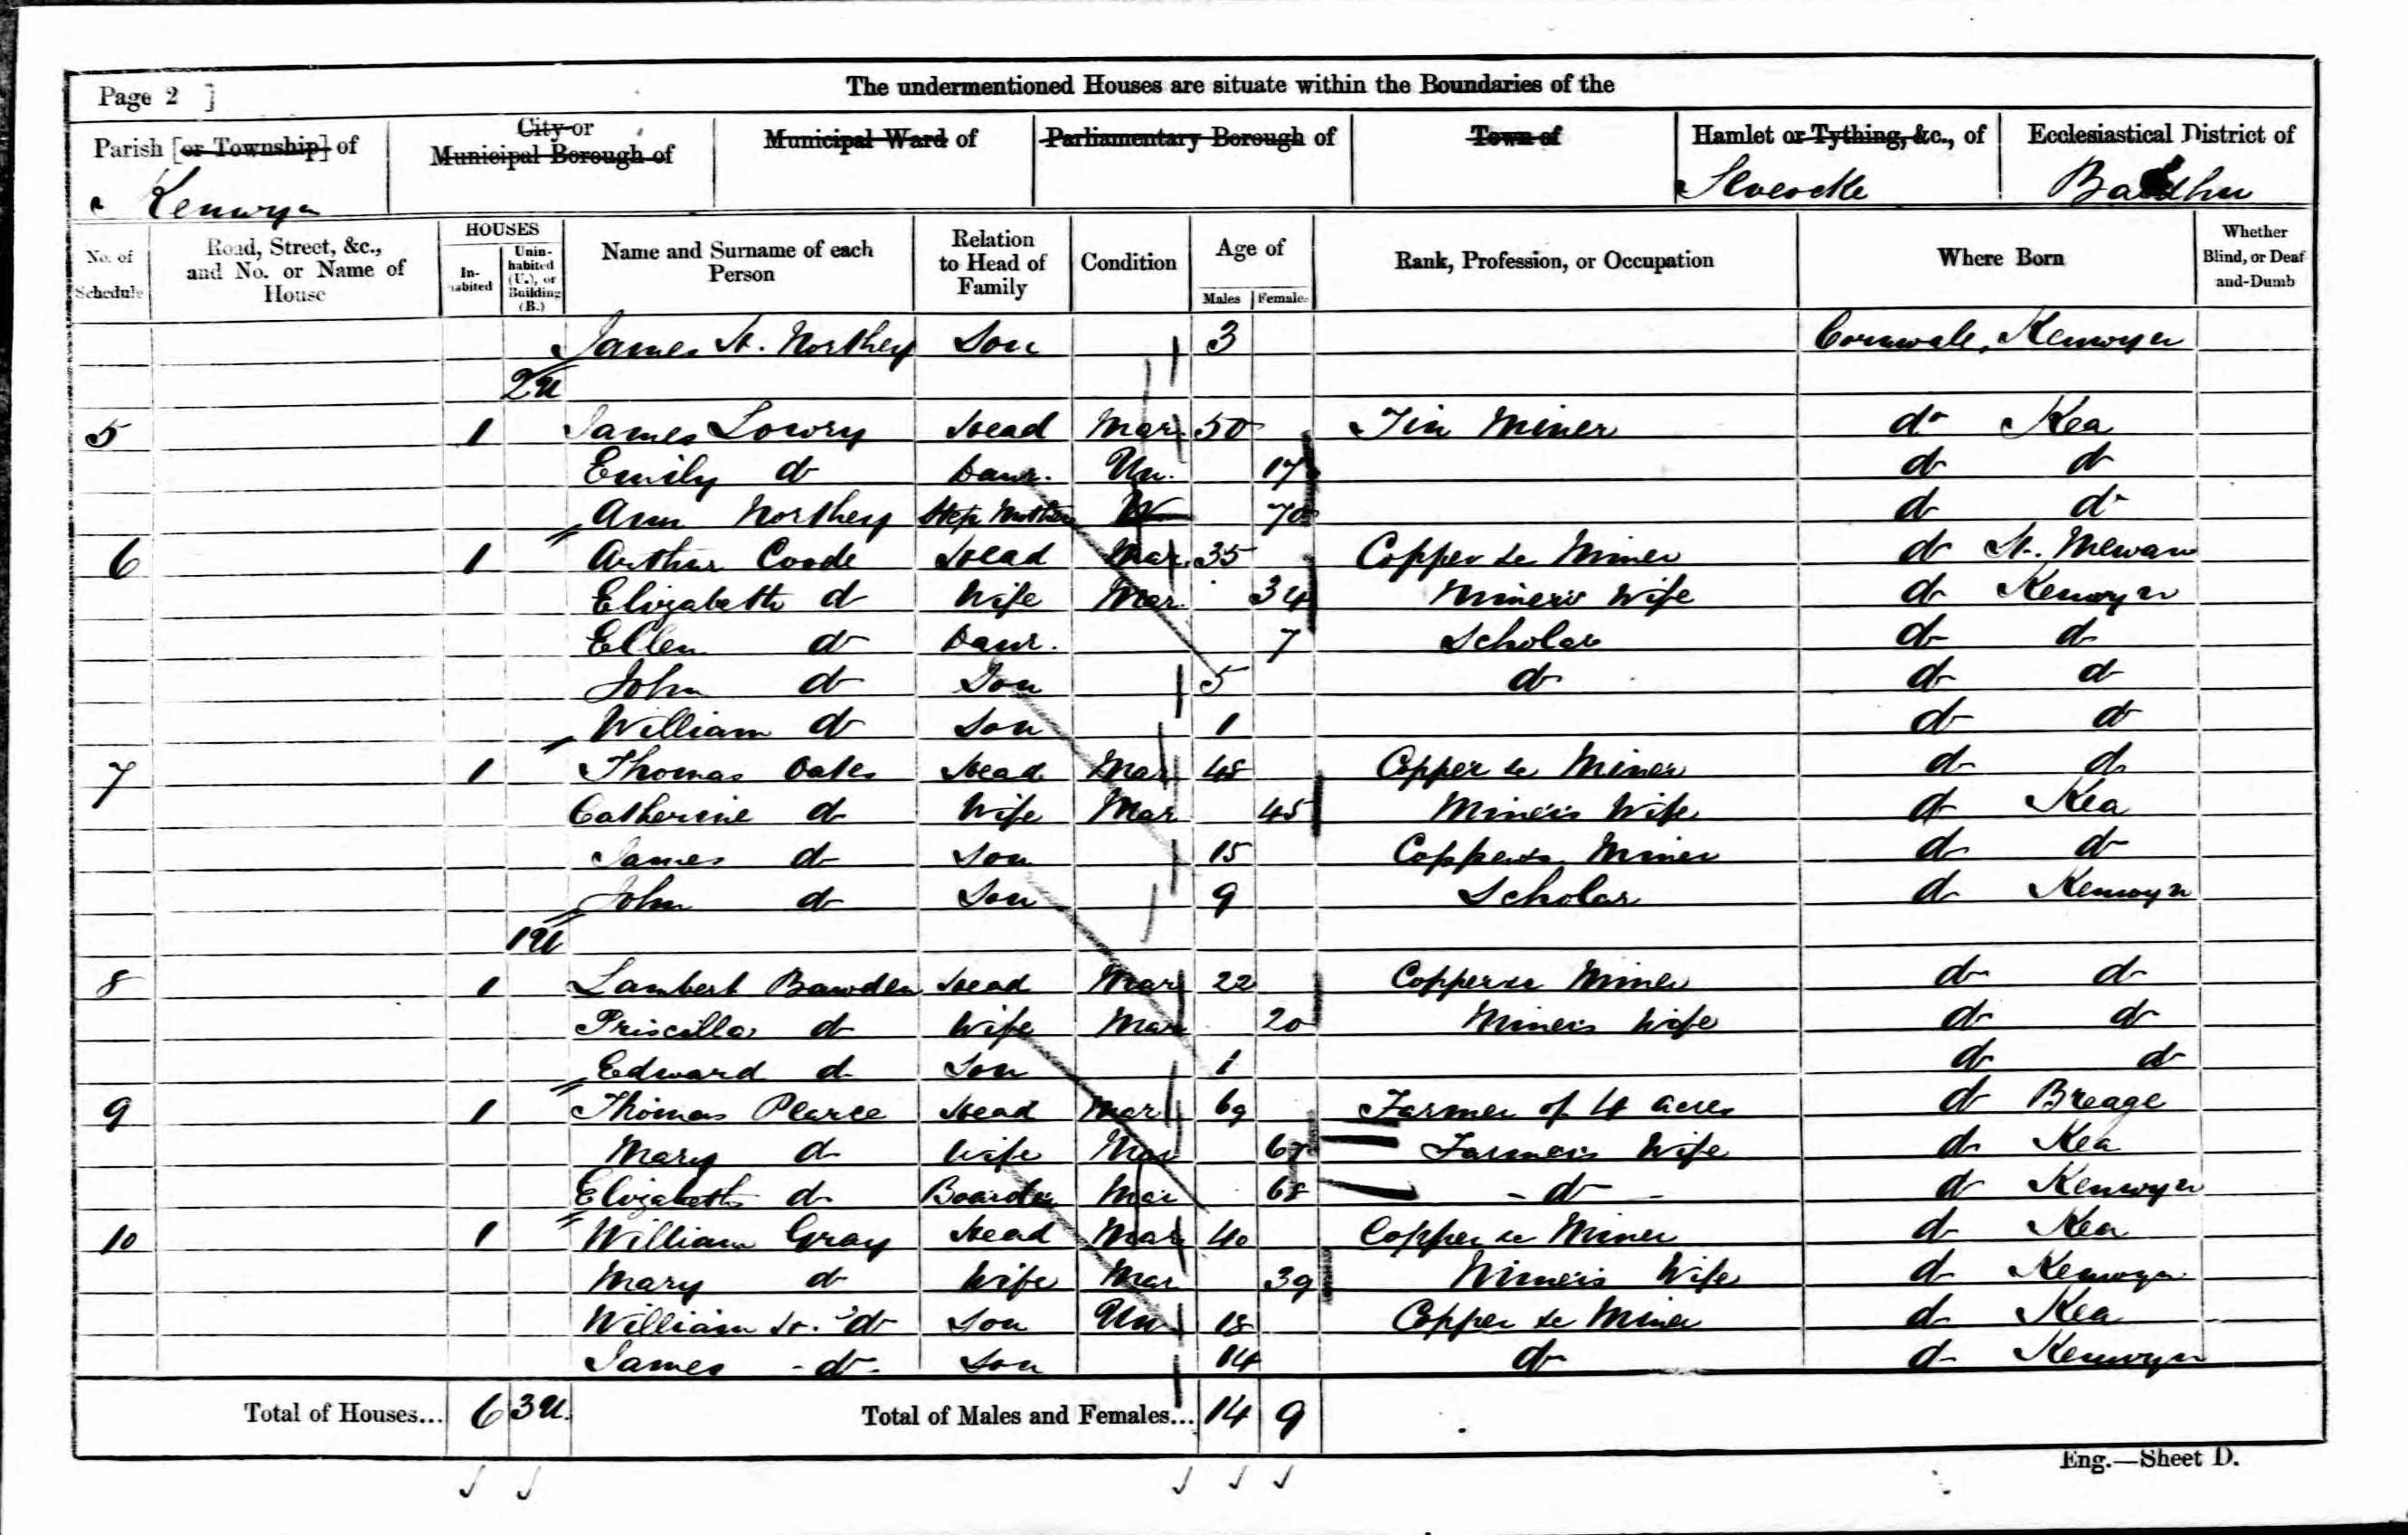 Page 2 ]
The undermentioned Houses are situate within the Boundaries of the
Parish [or Township] of
City or Municipal Borough of
Municipal Ward of
Parliamentary Borough of
Town of
Hamlet or Tything, &c., of
Ecclesiastical District of
Kenwyn
No. of Schedule
Road, Street, &c., and No. or Name of House
HOUSES
In-habited
Unin-habited (U.), or Building (B.)
Name and Surname of each Person
Relation to Head of Family
Condition
Age of
Males Females
Rank, Profession, or Occupation
Where Born
Whether Blind, or Deaf-and-Dumb
James H. Northey Son 3 Cornwall, Kenwyn
2U
5 1 James Lowry Head Mar. 50 Tin Miner do Kea
Emily do Daur. Un. 17 do do
Ann Northey Step Mother W 70 do do
6 1 Arthur Coode Head Mar. 35 Copper &c Miner do St. Mewan
Elizabeth do Wife Mar. 34 Miner's Wife do Kenwyn
Ellen do Daur. 7 Scholar do do
John do Son 5 do do do
William do Son 1 do do
7 1 Thomas Oates Head Mar 48 Copper &c Miner do do
Catherine do Wife Mar 45 Miner's Wife do Kea
James do Son 15 Copper &c Miner do do
John do Son 9 Scholar do Kenwyn
1U
8 1 Lambert Bawden Head Mar 22 Copper &c Miner do do
Priscilla do Wife Mar 20 Miner's Wife do do
Edward do Son 1 do do
9 1 Thomas Pearce Head Mar 69 Farmer of 4 acres do Breage
Mary do Wife Mar Farmer's Wife do Kea
Elizabeth do Boarder Mar 68 - do - do Kenwyn
10 1 William Gray Head Mar 40 Copper &c Miner do Kea
Mary do Wife Mar 39 Miner's Wife do Kenwyn
William H. do Son Un 18 Copper &c Miner do Kea
James - do - Son 14 do do Kenwyn
Total of Houses... 6 3U.
Total of Males and Females... 14 9
Eng.—Sheet D.